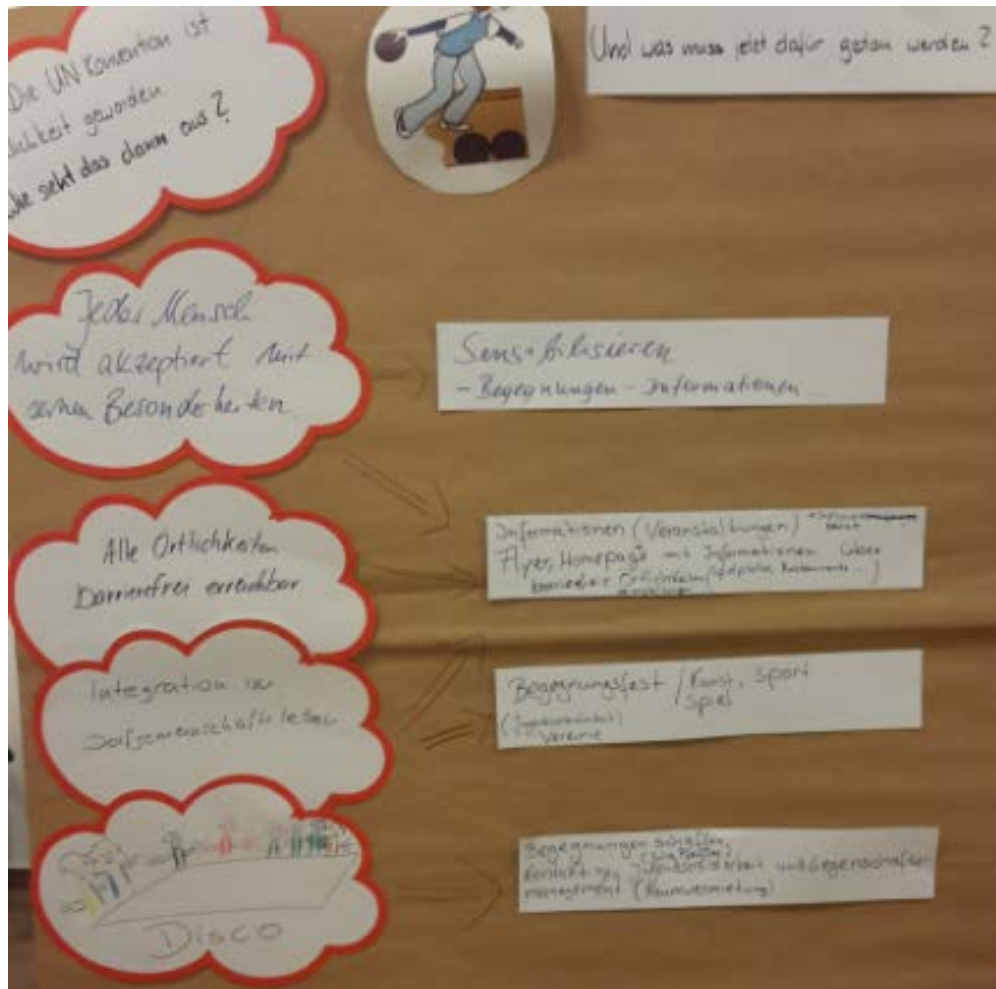 Die UN Konvention ist
lichkeit geworden
Wie sieht das dann aus?
Und was muss jetzt dafür getan werden?
Jeder Mensch
wird akzeptiert mit
seinen Besonderheiten
Sensibilisieren
- Begegnungen - Informationen
Alle Örtlichkeiten
Barrierefrei erreichbar
Informationen (Veranstaltungen)
Flyer, Homepage mit Informationen über
Integration in
Dorfgemeinschaftsleben
Begegnungsfest / Kunst, Sport
Spiel
Vereine
Disco
Begegnungen schaffen,
Kontakt
management (Raumvermietung)